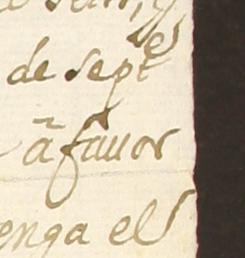 de sept.e
ã favor
enga el